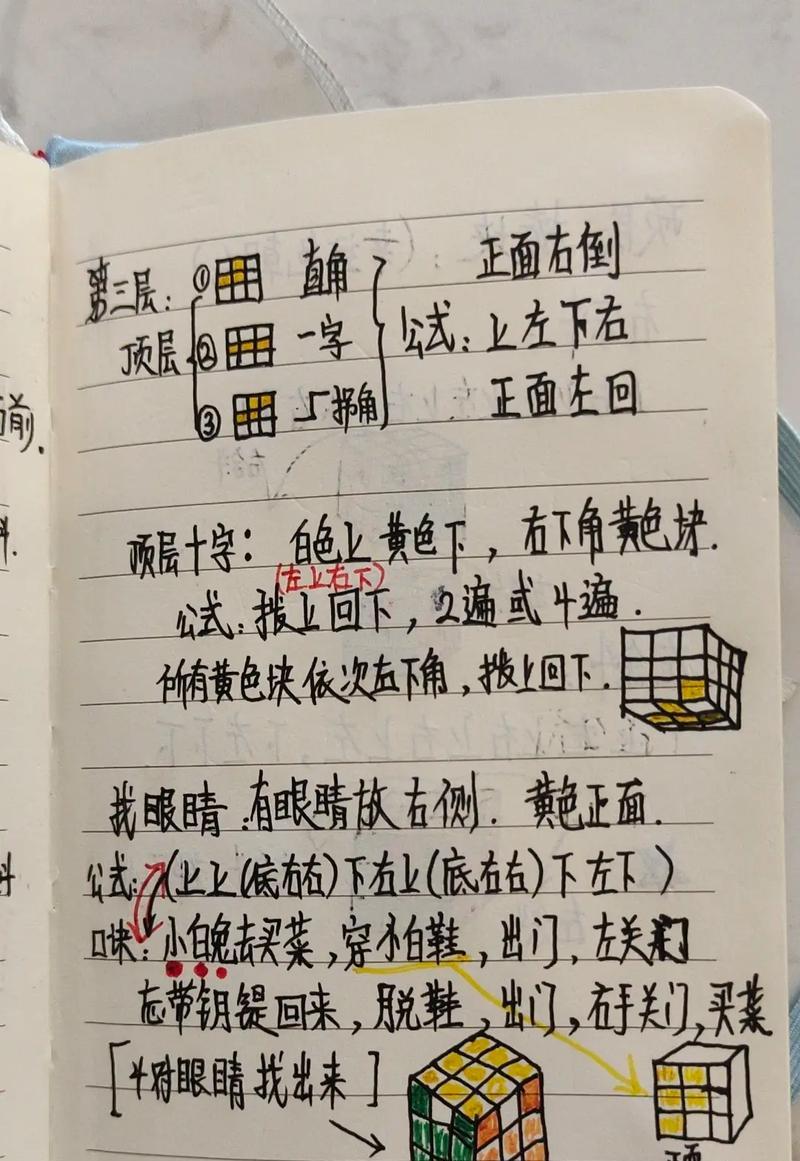 第三层: ① 直角 正面右倒
顶层 ② 一字 公式: 上左下右
③ 拐角 正面左回
前.
顶层十字: 白色上黄色下, 右下角黄色块.
(左上右下)
公式: 拨上回下, 2遍或4遍.
所有黄色块依次右下角, 拨上回下.
找眼睛: 有眼睛放右侧. 黄色正面.
公式: (上上(底右右)下右上(底右右)下左下)
口块: 小白兔去买菜, 穿小白鞋, 出门, 左关门
忘带钥鍉回来, 脱鞋, 出门, 右手关门, 买菜
[4对眼睛找出来]
顶